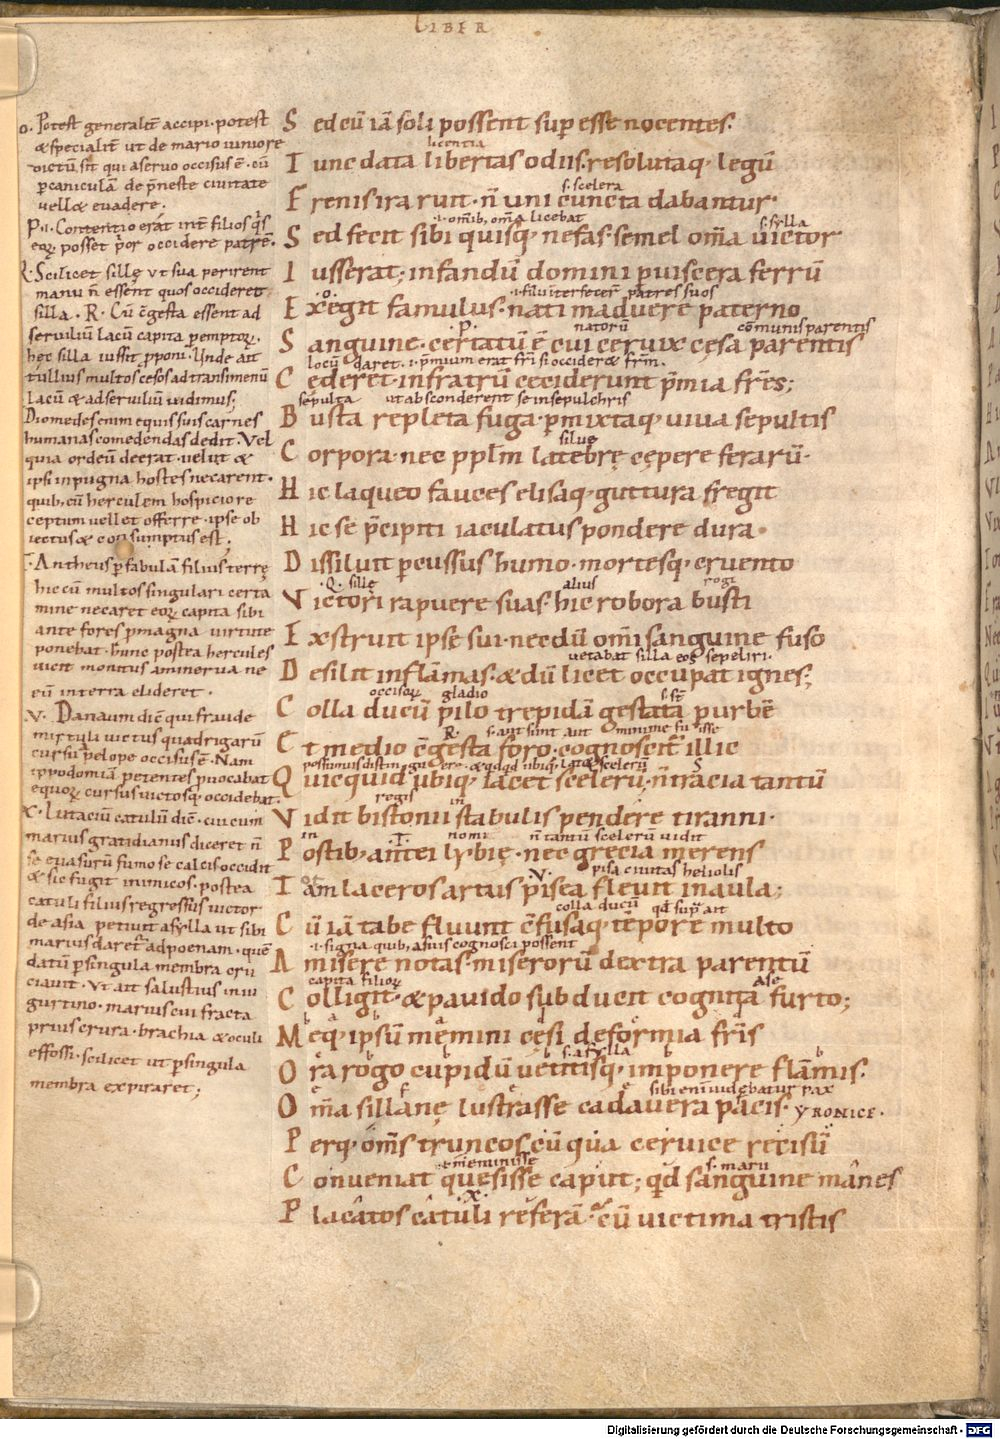 LIBER
o. Potest generalit̄ accipi. potest
& specialit̄ ut de mario iuniore
dictū sit qui a seruo occisus ē. cū
p caniculā de p̄neste ciuitate
uell& euadere.
P. .i. Contentio erat int̄ filios q̇s
eoꝝ posset p̄or occidere patrē.
Q. Scilicet sillę ut sua perirent
manu n̄ essent quos occideret
silla. R. Cū c̄gesta essent ad
seruiliū lacū capita pemptoꝝ.
hec silla iussit pponi. Unde ait
tullius multos cesos ad transimenū
lacū & ad seruiliū uidimus;
Diomedes enim equis suis carnes
humanas comedendas dedit. Vel
quia ordeū deerat. uel ut &
ipsi in pugna hostes necarent.
quib; cū herculem hospicio re
ceptum uellet offerre. ipse ob
iectus & consumptus est.
T. Antheus p fabulā filius terrę
hic cū multos singulari certa
mine necaret eoꝝ capita sibi
ante fores p magna uirtute
ponebat. hunc postea hercules
uicit monitus a minerua ne
eū in terra elideret.
V. Danaum diē qui fraude
mirtuli uictus quadrigarū
cursu pelope occisus ē. Nam
ippodomiā petentes puocabat
equoꝝ cursus uictosq; occidebat.
X. Lutaciū catulū diē. cui cum
marius gratidianus diceret n̄
se euasurū fumo se calcis occidit
& sic fugit inimicos. postea
catuli filius regressus uictor
de asia petiuit a sylla ut sibi
marius daret̄ ad poenam. quē
datū p singula membra cru
ciauit. Vt ait salustius in iu
gurtino. marius cui fracta
prius crura. brachia & oculi
effossi. scilicet ut p singula
membra expiraret;
Sed cū iā soli possent sup esse nocentes.
licentia
Tunc data libertas odiis. resolutaq; legū
s. scelera
Frenis ira ruit. n̄ uni cuncta dabantur
.i. om̄ib; om̄a licebat s. sylla
Sed fecit sibi quisq; nefas. semel om̄a uictor
Iusserat; infandū domini p uiscera ferrū
.o. .i. filii interfecer̄ patres suos
Exegit famulus. nati maduere paterno
.P. natorū cōmunis parentis
Sanguine. certatū ē cui ceruix cęsa parentis
locū daret. .i. p̄mium erat fr̄i si occider& fr̄m.
Cederet. in fratrū ceciderunt p̄mia fr̄es;
sepulta ut absconderent se in sepulchris
Busta repleta fuga. pmixtaq; uiua sepultis
silue
Corpora. nec ppl̄m latebrę cępere ferarū.
Hic laqueo fauces elisaq; guttura fregit
Hic se p̄cipiti iaculatus pondere dura
Dissiluit pcussus humo. mortesq; cruento
.Q. sillę alius rogi
Victori rapuere suas. hic robora busti
Exstruit ipse sui. necdū om̄i sanguine fuso
uetabat silla eos sepeliri.
Desilit in flāmas. & dū licet occupat ignes;
occisoꝝ gladio s. st̄
Colla ducū pilo trepidā gestata p urbē
R. s. aut sunt aut minime fuisse
Et medio c̄gesta foro. cognoscit̄ illic
possumus distinguere. & qdqd ubiq; latet scelerū S
Quicquid ubiq; iacet scelerū. n̄ tracia tantū
regis in
Vidit bistonii stabulis pendere tiranni.
in .T. nomi n̄ tantū scelerū uidit
Postib; antei lybię. nec grecia merens
V. pisa ciuitas heliolis
Tam laceros artus pisea fleuit in aula;
colla ducū qd sup̄ ait
Cū iā tabe fluunt c̄fusaq; tēpore multo
.i. signa quib; a suis cognosci possent
Amisere notas. miserorū dextra parentū
capita filioꝝ
Colligit. & pauido subducit cognita furto;
Meq; ipsū memini cęsi deformia fr̄is
s. a sylla
Ora rogo cupidū uetitisq; imponere flāmis.
sibi eni uidebatur pax
Om̄a sillanę lustrasse cadauera pacis. YRONICE.
Perq; om̄s truncos cū qua ceruice recisū
.e. meminisse s. marii
Conueniat quesisse caput; qd sanguine mânes
.X.
Placâtos câtuli referā. cū uictima tristis
Digitalisierung gefördert durch die Deutsche Forschungsgemeinschaft - DFG